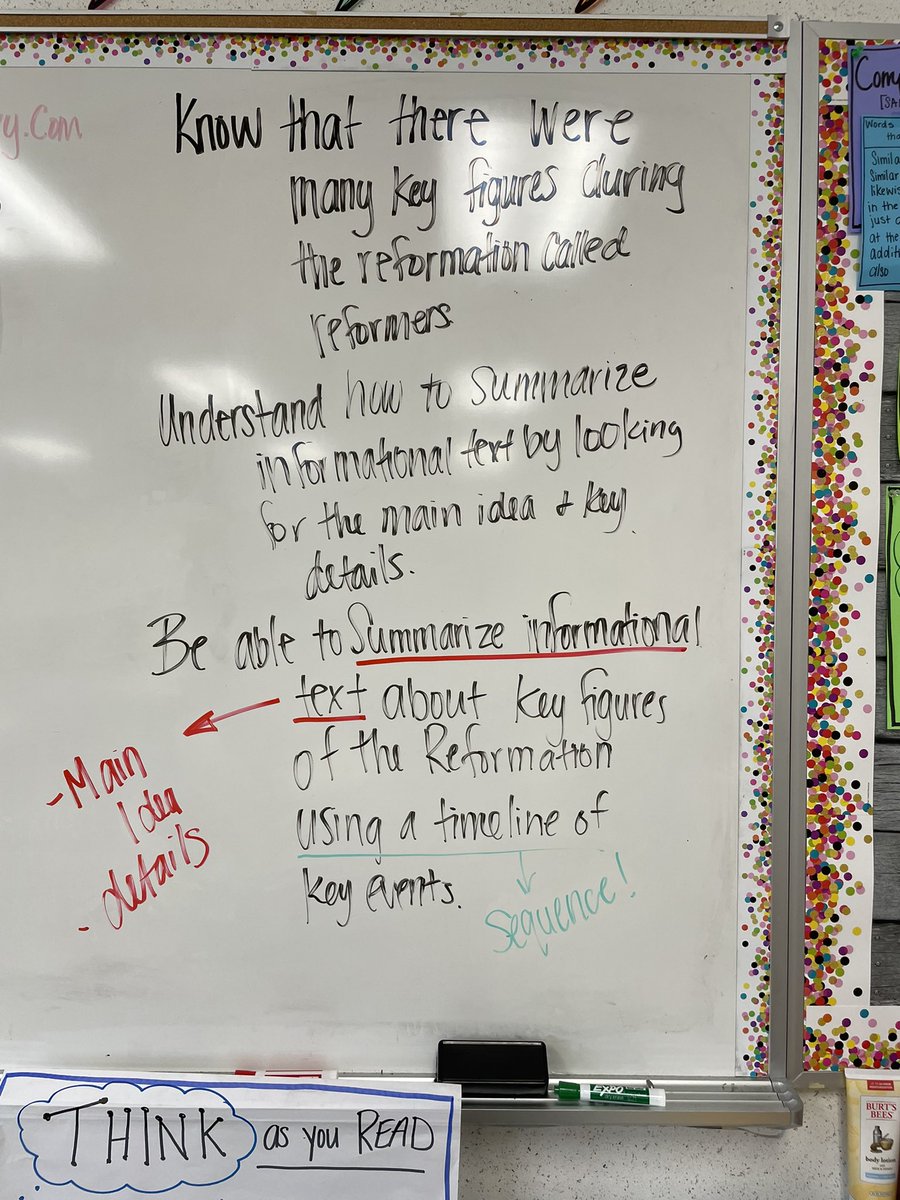 y.com
Know that there were
many key figures during
the reformation called
reformers
Understand how to summarize
informational text by looking
for the main idea + key
details.
Be able to Summarize informational
text about key figures
of the Reformation
using a timeline of
key events.
Sequence!
- Main
Idea
- details
THINK as you READ
EXPO
BURT'S
BEES
body lotion
Com
[SA
Words
tha
Simila
Similar
likewis
in the
just a
at the
additi
also